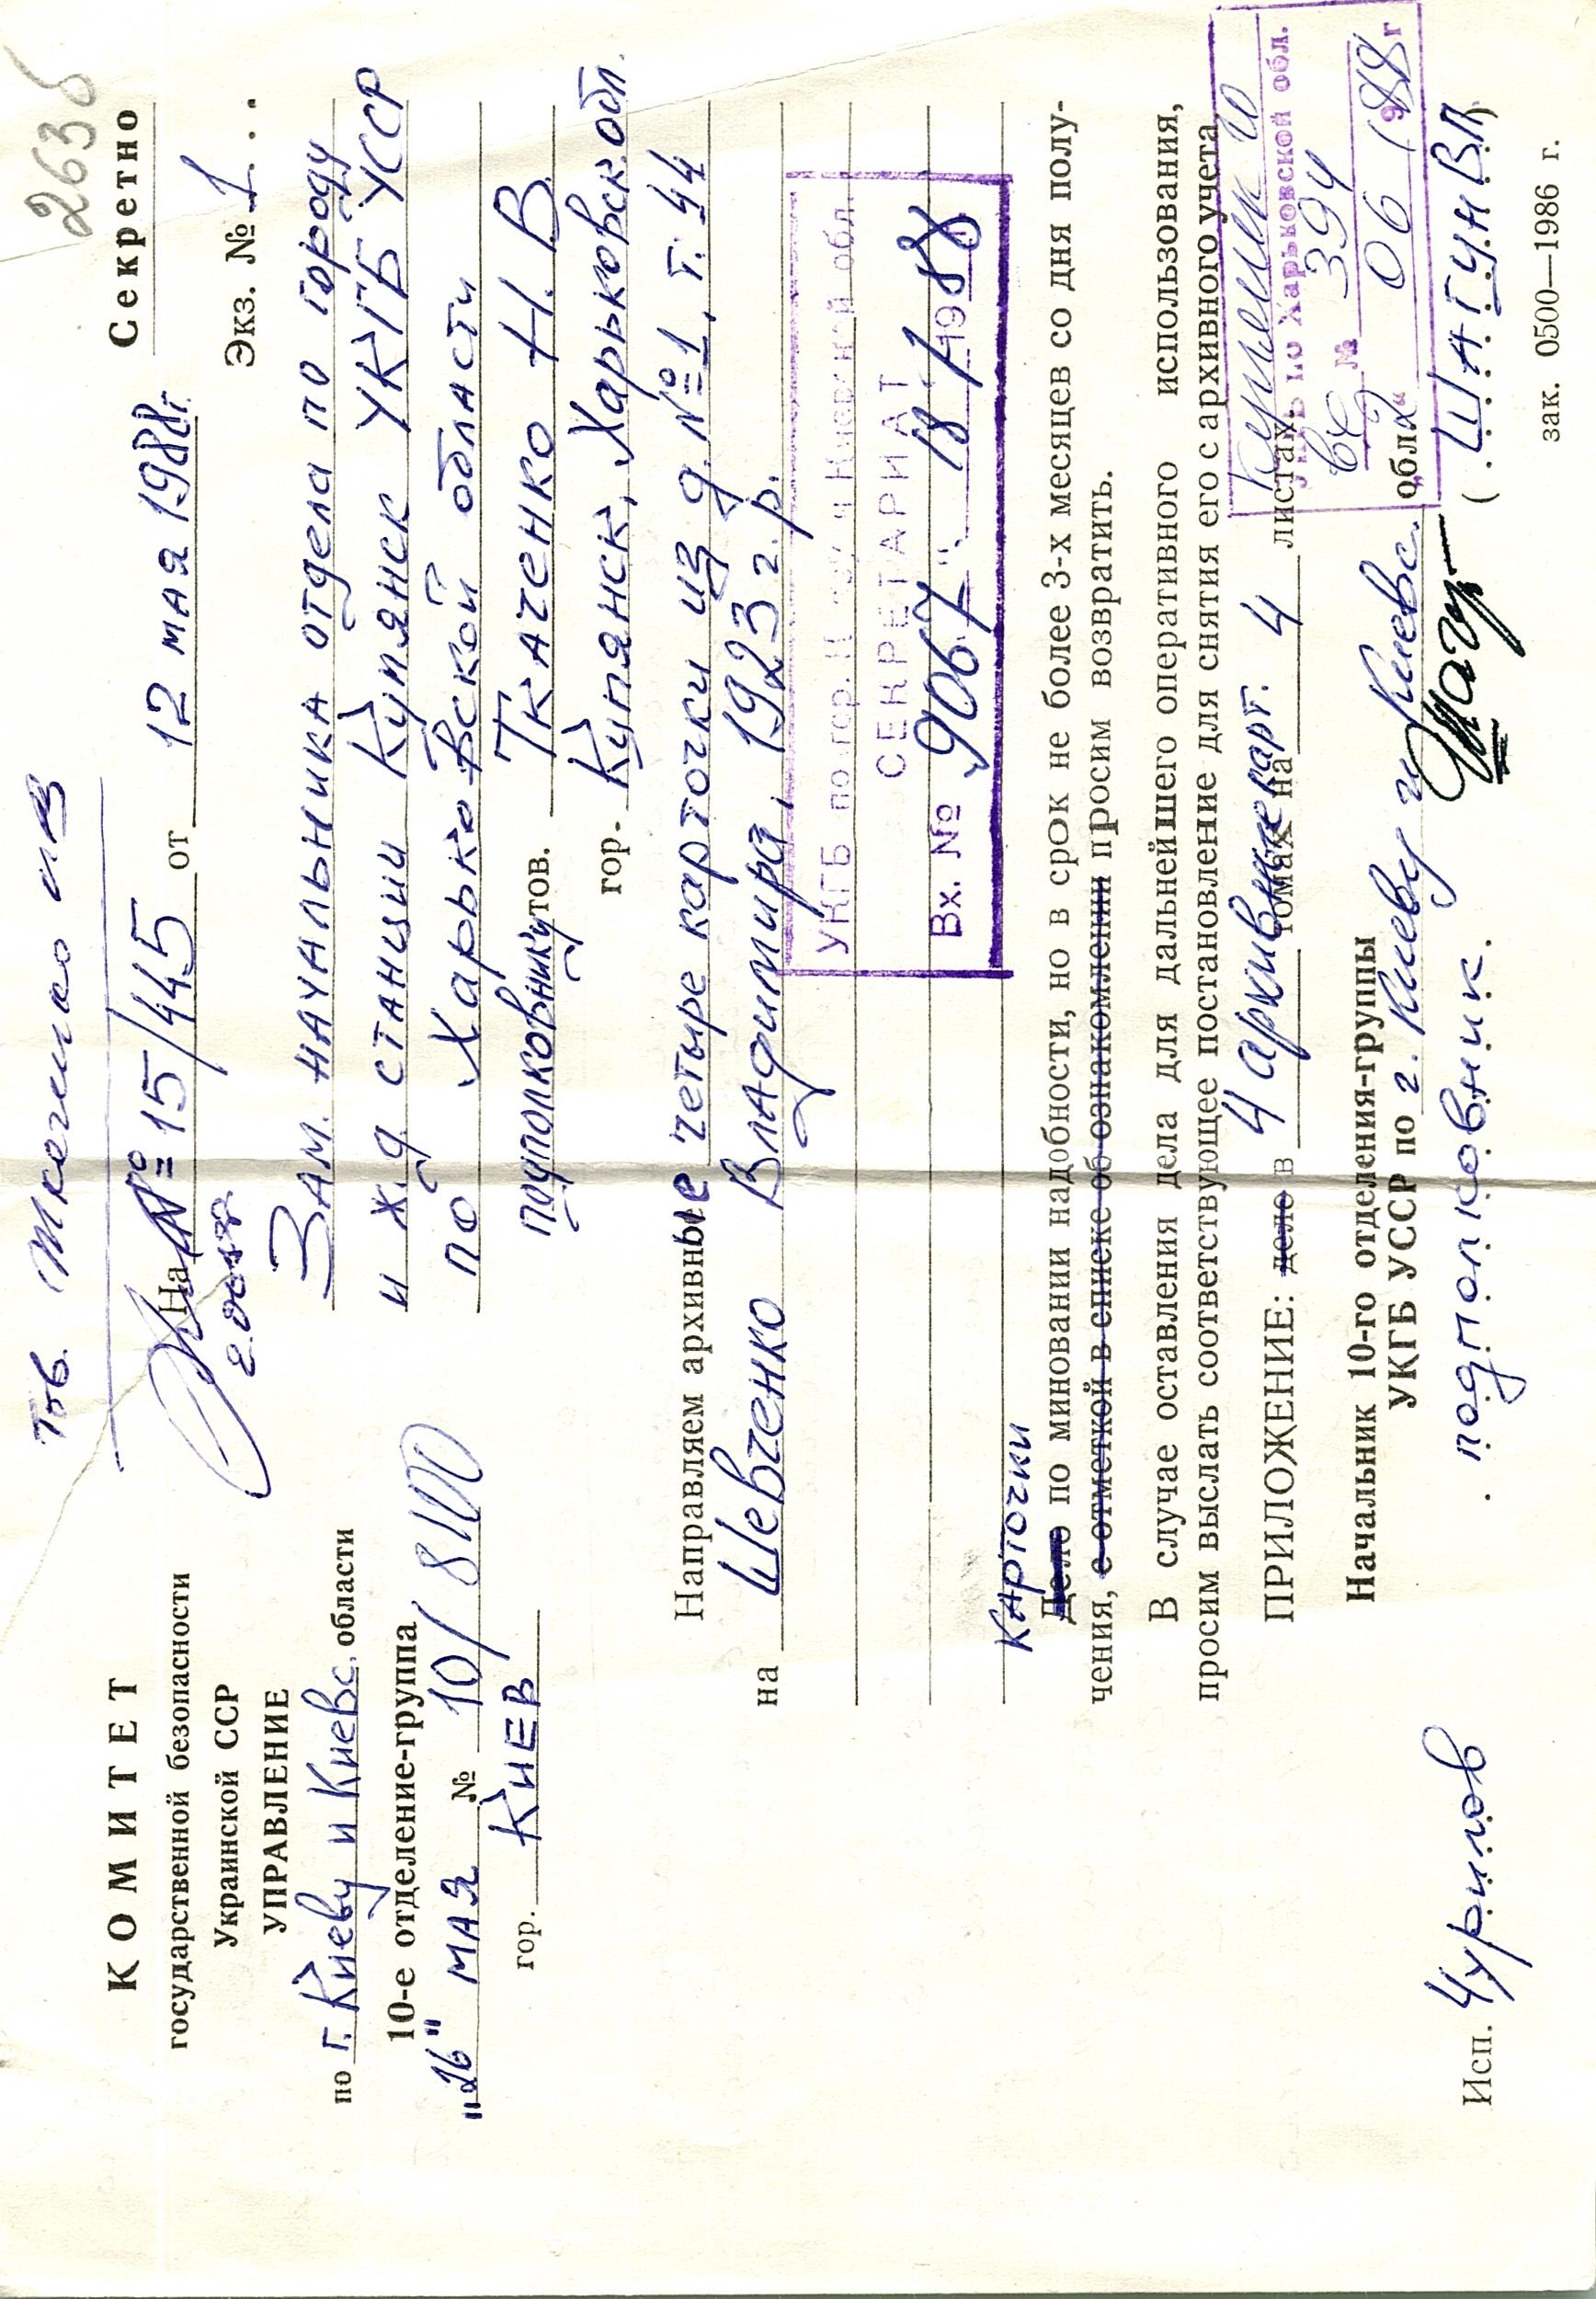 2636
Секретно
Экз. № 1...
Тов. Ткаченко
На № 15/445 от 12 мая 1988г.
КОМИТЕТ
государственной безопасности
Украинской ССР
УПРАВЛЕНИЕ
по г. Киеву и Киевс. области
10-е отделение-группа
„26" мая № 10/8100
гор. Киев
Зам. начальника отдела по городу
и ж.д станции Купянск УКГБ УССР
по Харьковской области
подполковнику тов. Ткаченко Н.В.
гор. Купянск, Харьковск.обл.
Направляем архивные четыре карточки из д. №1, т. 44
на Шевченко Владимира, 1923 г.р.
УКГБ по гор. и Киевской обл.
СЕКРЕТАРИАТ
Вх. № 9067 " 18 1988
карточки
Дело по миновании надобности, но в срок не более 3-х месяцев со дня полу-
чения, с отметкой в списке об ознакомлении просим возвратить.
В случае оставления дела для дальнейшего оперативного использования,
просим выслать соответствующее постановление для снятия его с архивного учета.
ПРИЛОЖЕНИЕ: дело в 4 архивные карт. томах на 4 листах.
по Харьковской обл.
№ 394
06 1988г
Начальник 10-го отделения-группы
УКГБ УССР по г. Киеву и Киевс. обл.
подполковник. (ШАГУН В.П)
Исп. Чурилов
зак. 0500—1986 г.